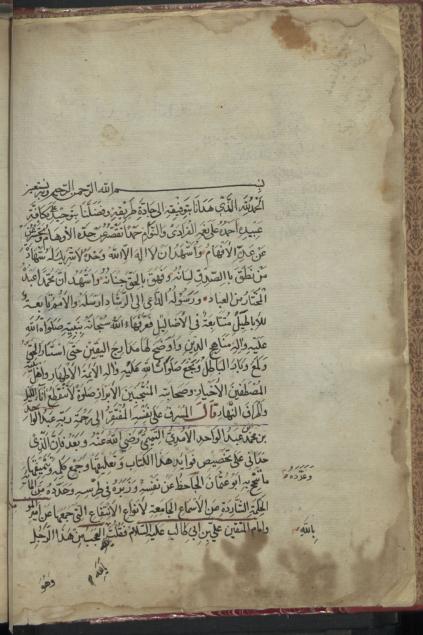 بسم الله الرحمن الرحيم وبه نستعين
الحمد لله الذي هدانا بتوفيقه الى جادة طريقه وفضلنا بتوحيده بكافة
عبيده احمده على نعمه الفرادى والتوام حمدا تقصر عن حده الاوهام
عن الافهام واشهد ان لا اله الا الله وحده لا شريك له شهادة
من نطق بالصدق لسانه وفهق بالحق جنانه واشهد ان محمدا عبده
المختار من العباد ورسوله الداعي الى الرشاد ارسله والامم
للاباطيل متتابعة في الاضاليل فعرفها الله سبحانه بنبيه صلوات الله
عليه واله مناهج الدين واوضح لها مدارج اليقين حتى استنار الحق
ولمع الباطل صلوات الله عليه واله الائمة الاطهار واهله
المصطفين الاخيار وصحابته المنتجبين الابرار صلوة لا تنقطع اناء الليل
واطراف النهار قال المسرف على نفسه المفتقر الى رحمة ربه عبد الواحد
بن محمد عبد الواحد الامدي التميمي رضي الله عنه وبعد فان الذي
حداني على تخصيص فوايد هذا الكتاب وتعليقها وجمع كلمه وتنميقها
ما تبجح به ابو عثمان الجاحظ عن نفسه وزبره في طرسه وحدده من المائة
الحكمة الشاردة عن الاسماع الجامعة لانواع الانتفاع التي جمعها عن امير
وامام المتقين علي بن ابي طالب عليه السلام فقلت العجب من هذا الرجل
وعدده
بالله
وهو